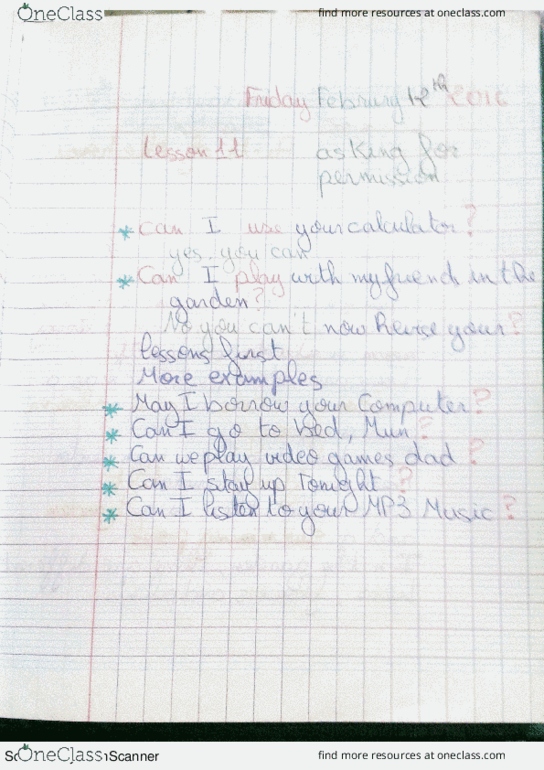 OneClass
find more resources at oneclass.com
Friday Februry 12th 2016
Lesson 11 asking for
permission
* Can I use your calculator?
yes, you can
* Can I play with my friends in the
garden?
No you can't now Revise your?
lessons first
More examples
* May I borrow your Computer?
* Can I go to bed, Mum?
* Can we play video games dad?
* Can I stay up Tonight?
* Can I listen to your MP3 Music?
OneClass Scanner
find more resources at oneclass.com